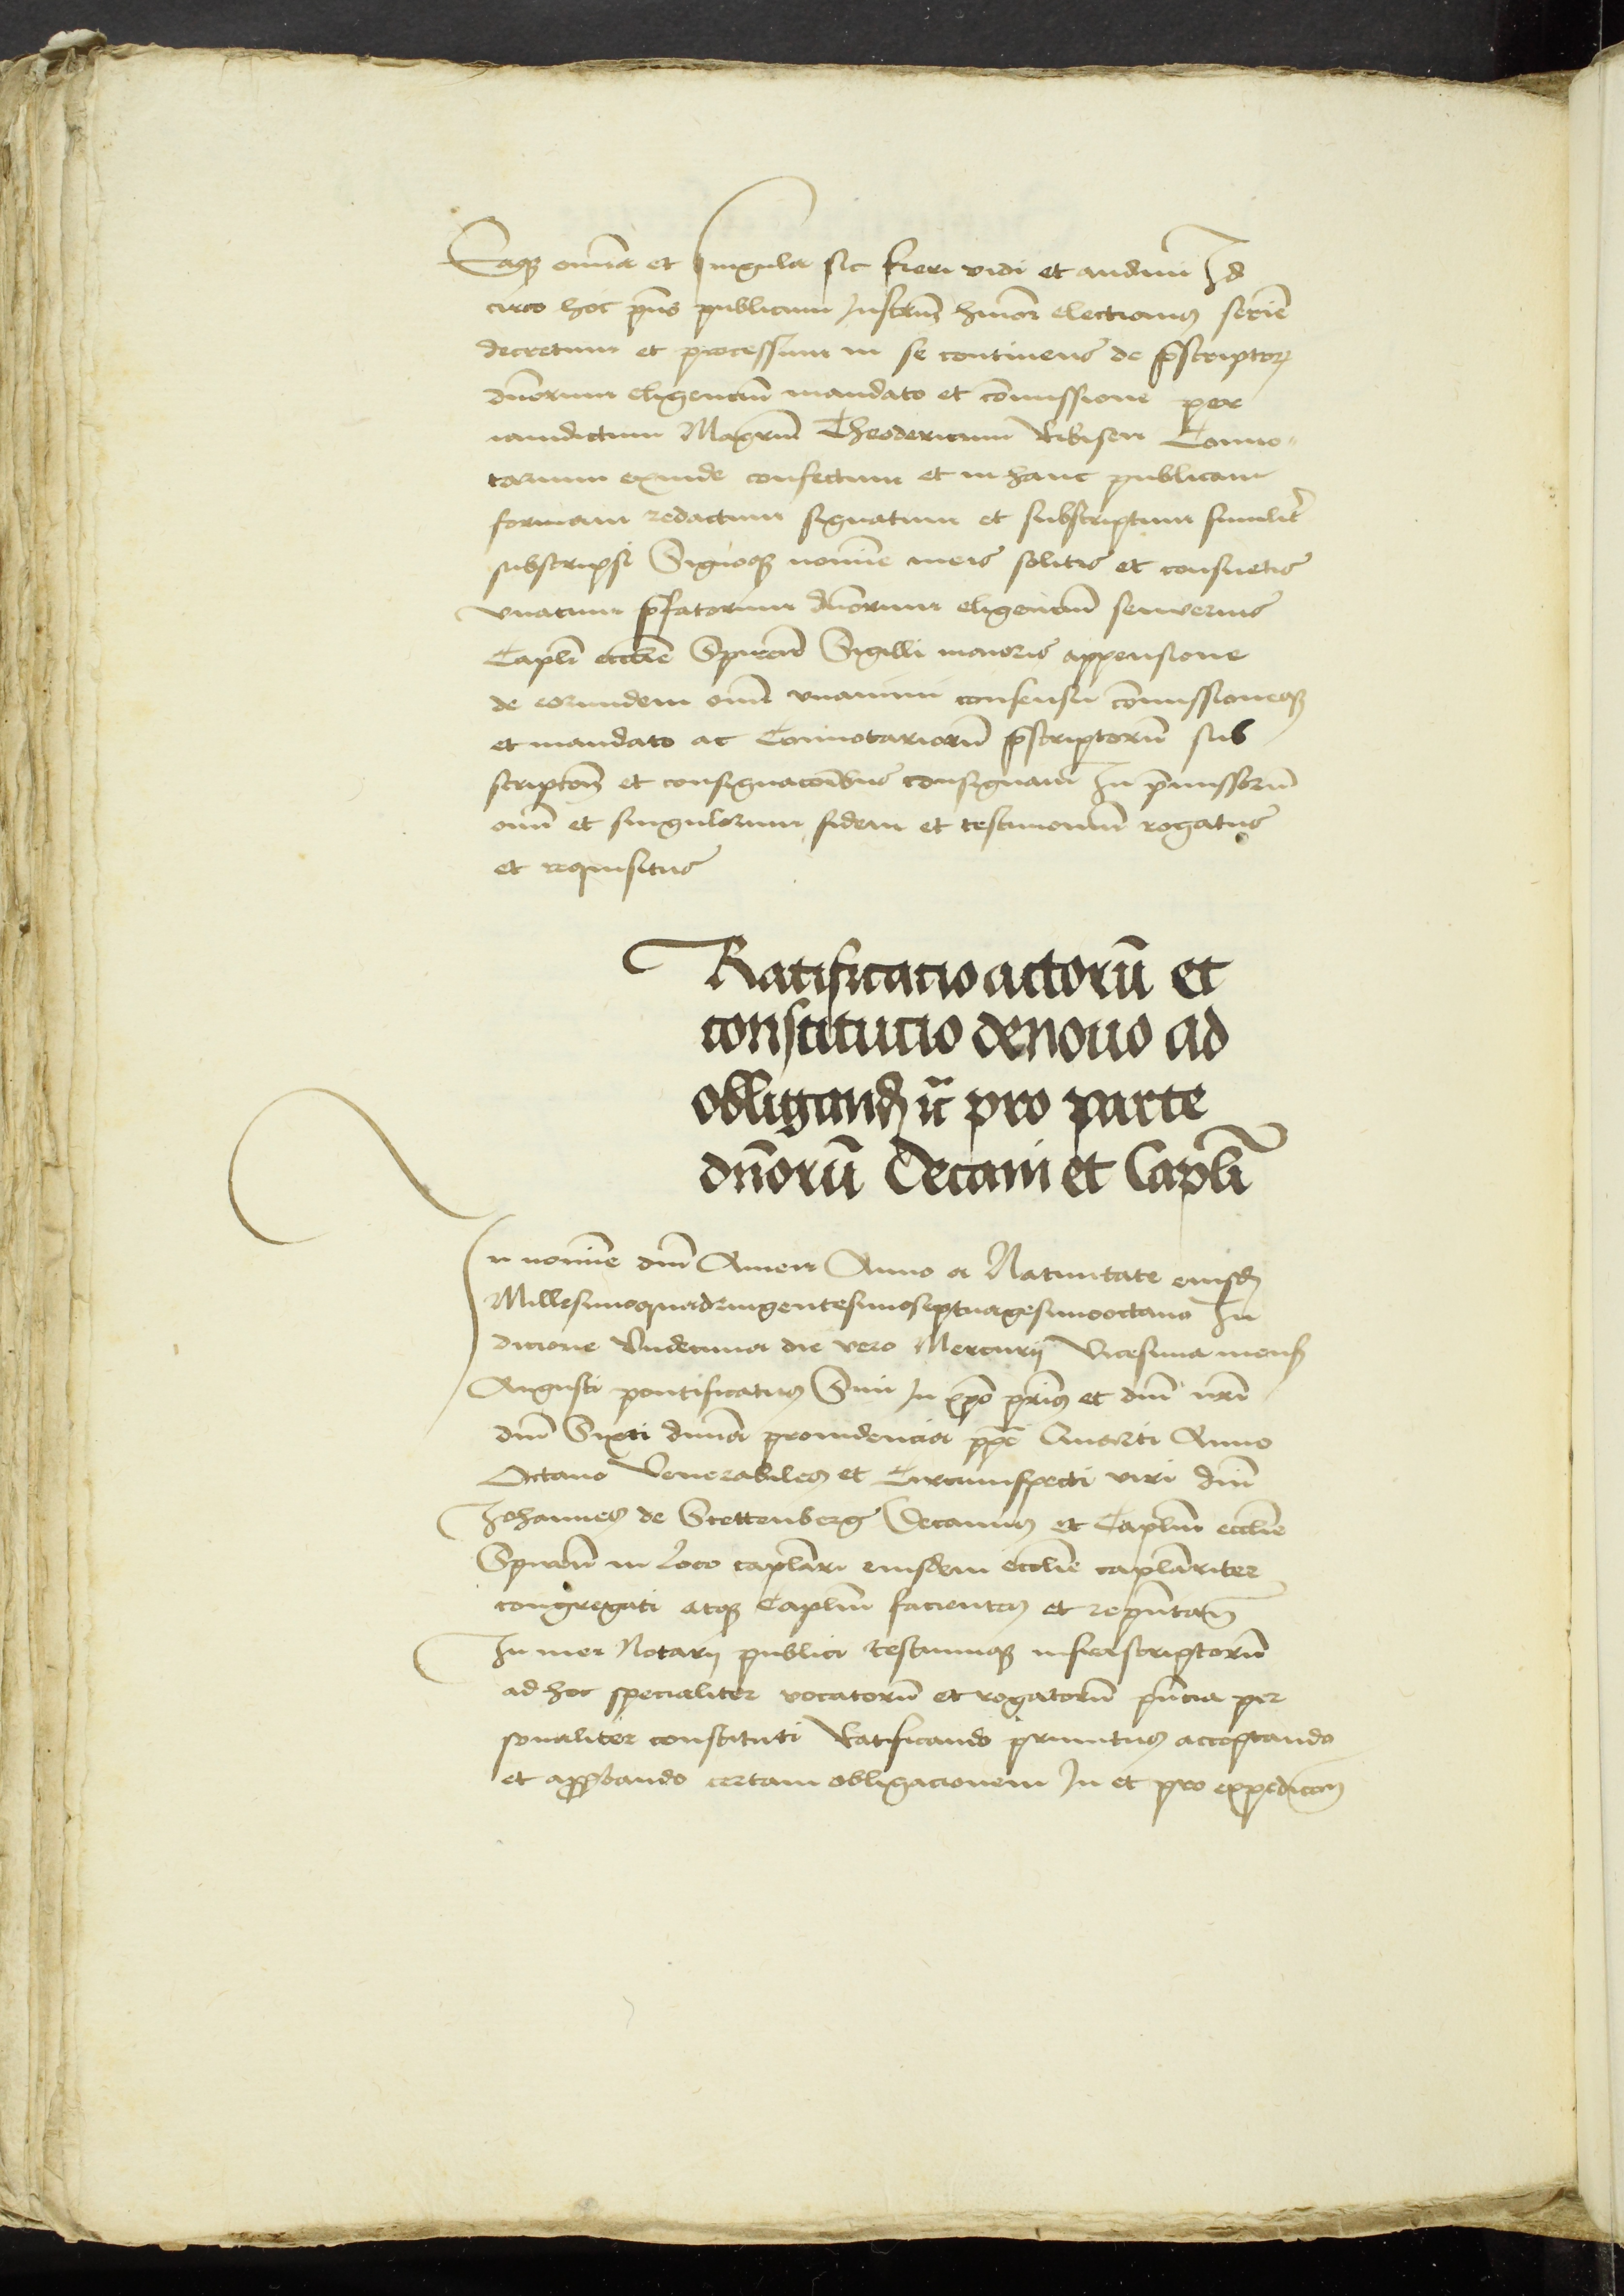 Eaq̧ om̄ia et singula sic fieri vidi et audiui Id
circo hoc p̄ns publicum Instrm̄ hmōi electionis seriē
decretum et processum in se continens de p̄scriptoꝝ
dn̄orum eligenciū mandato et cōmissione per
iamdictum Magrm̄ Theodericum Conno-
tarium exinde confectum et in hanc publicam
formam redactum signatum et subscriptum similit̄
subscripsi Signoq̧ nomīe meis solitis et consuetis
vnacum p̄fatorum dn̄orum eligenciū
Capli ecclie Spireñ Sigilli maioris appensione
de eorundem om̄i vnanimi consensu cōmissioneq̧
et mandato ac Connotariorū p̄scriptorū sub
scriptoīs et consignacoībus consignaui In p̄missorū
om̄i et singulorum fidem et testimoniū rogatus
et requisitus
Ratificatio actorū et
constitucio denouo ad
obligand̄ ꝛc̄ pro parte
dn̄orū Decani et Capli
In nomīe dn̄i Amen Anno a Natiuitate eiusd̄
Millesimoquadringentesimoseptuagesimooctauo In
dicione Vndecima die vero Mercurij Vicesima mens̄
Augusti pontificatus Sm̄i In xp̄o pr̄is et dn̄i nr̄i
dn̄i Sixti diuina prouidencia pp̄e Quarti Anno
Octauo Venerabiles et Circumspecti viri dn̄i
Johannes de Stettenberg Decanus et Caplm̄ ecclie
Spireñ in Loco caplari eiusdem ecclie caplariter
congregati atq̧ Caplm̄ facientes et rep̄ntañ
In mei Notarij publici testiumq̧ infrascriptorū
ad hoc specialiter vocatorū et rogatorū p̄ncia per
sonaliter constituti Ratificando primitus acceptando
et approbando certam obligacionem In et pro expedicoē